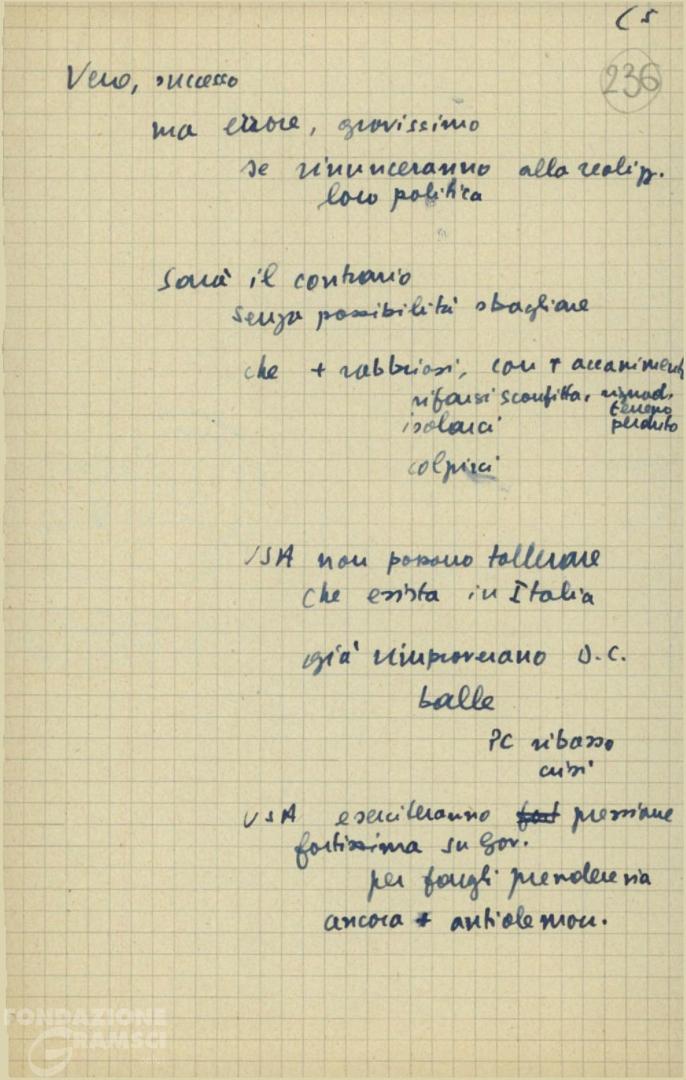 (5
236
Vero, successo
ma errore, gravissimo
se rinunceranno alla realizz.
loro politica
Sarà il contrario
senza possibilità sbagliare
che + rabbiosi, con + accaniment
rifarsi sconfitta, riguad.
terreno
isolarci perduto
colpirci
USA non possono tollerare
che esista in Italia
già rimproverano D.C.
balle
PC ribasso
crisi
USA eserciteranno fort pressione
fortissima su Gov.
per fargli prendere via
ancora + antidemocr.
FONDAZIONE
GRAMSCI